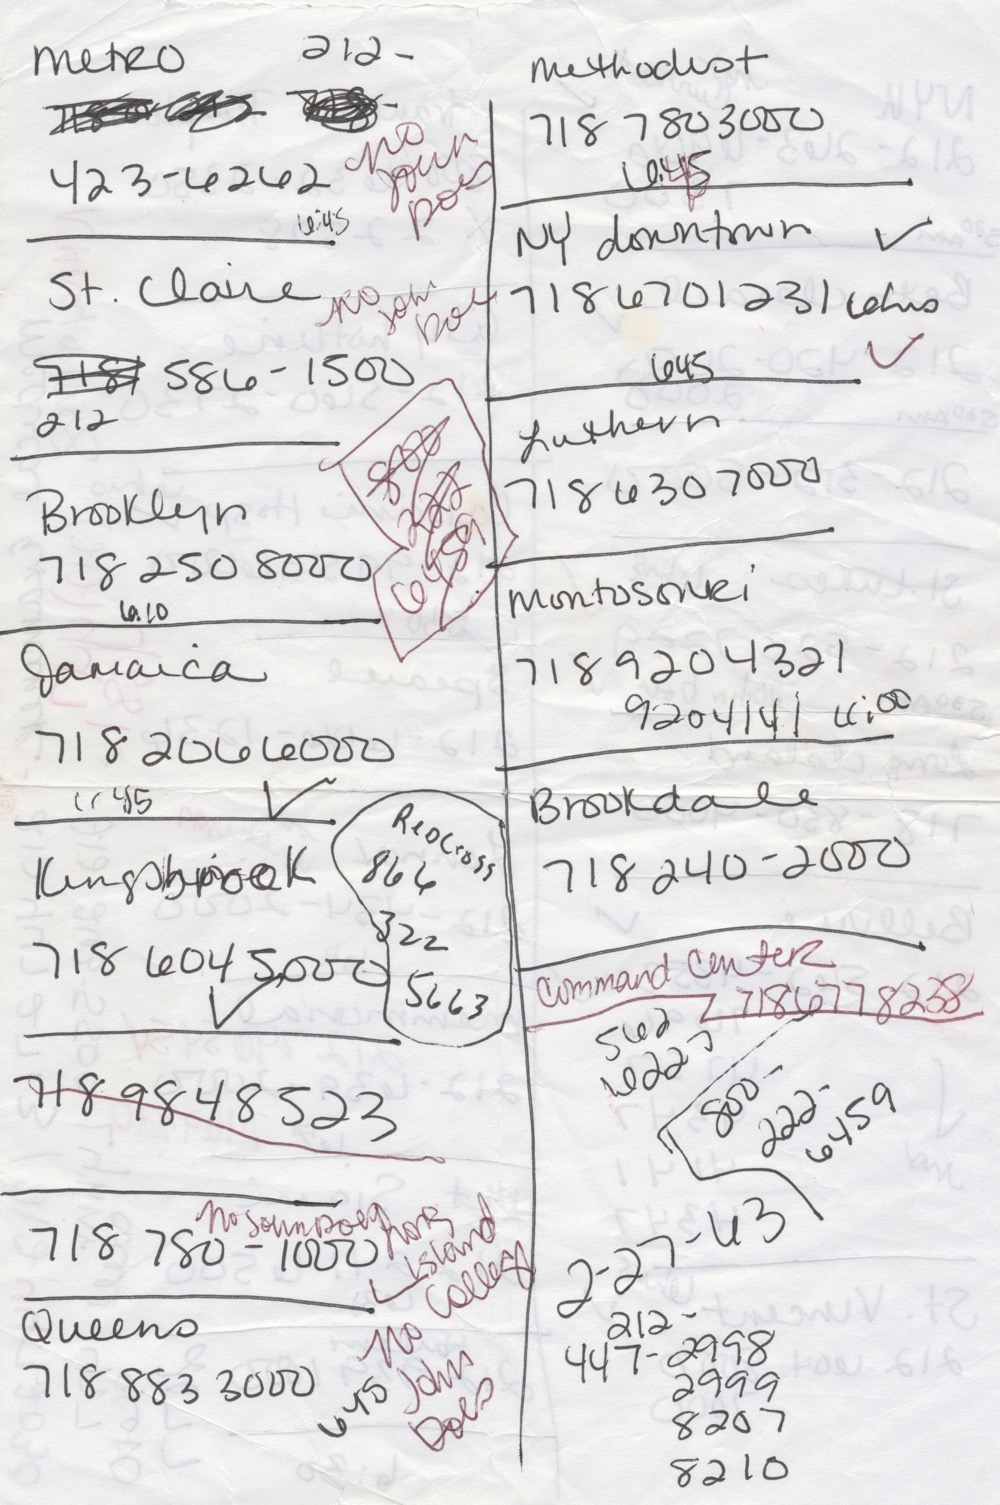 Metro 212-
423-6262
No
John
Does
6:45
St. Claire
No
John
Doe
718 586-1500
212
Brooklyn
718 250 8000
6:10
800
222
6459
Jamaica
718 206 6000
6:45
Kingsbrook
718 604 5000
Red Cross
866
322
5663
718 984 8523
No John Does
718 780-1000
Long
Island
College
Queens
718 883 3000
645
No
John
Does
Methodist
718 780 3000
6:45
NY downtown
718 670 1231
645
Luthern
718 630 7000
Montosonri
718 920 4321
920 4141 6:00
Brookdale
718 240-2000
Command Center
718 677 8238
562
6227
800-
222-
6459
2-27-43
212-
447-2998
2999
8207
8210